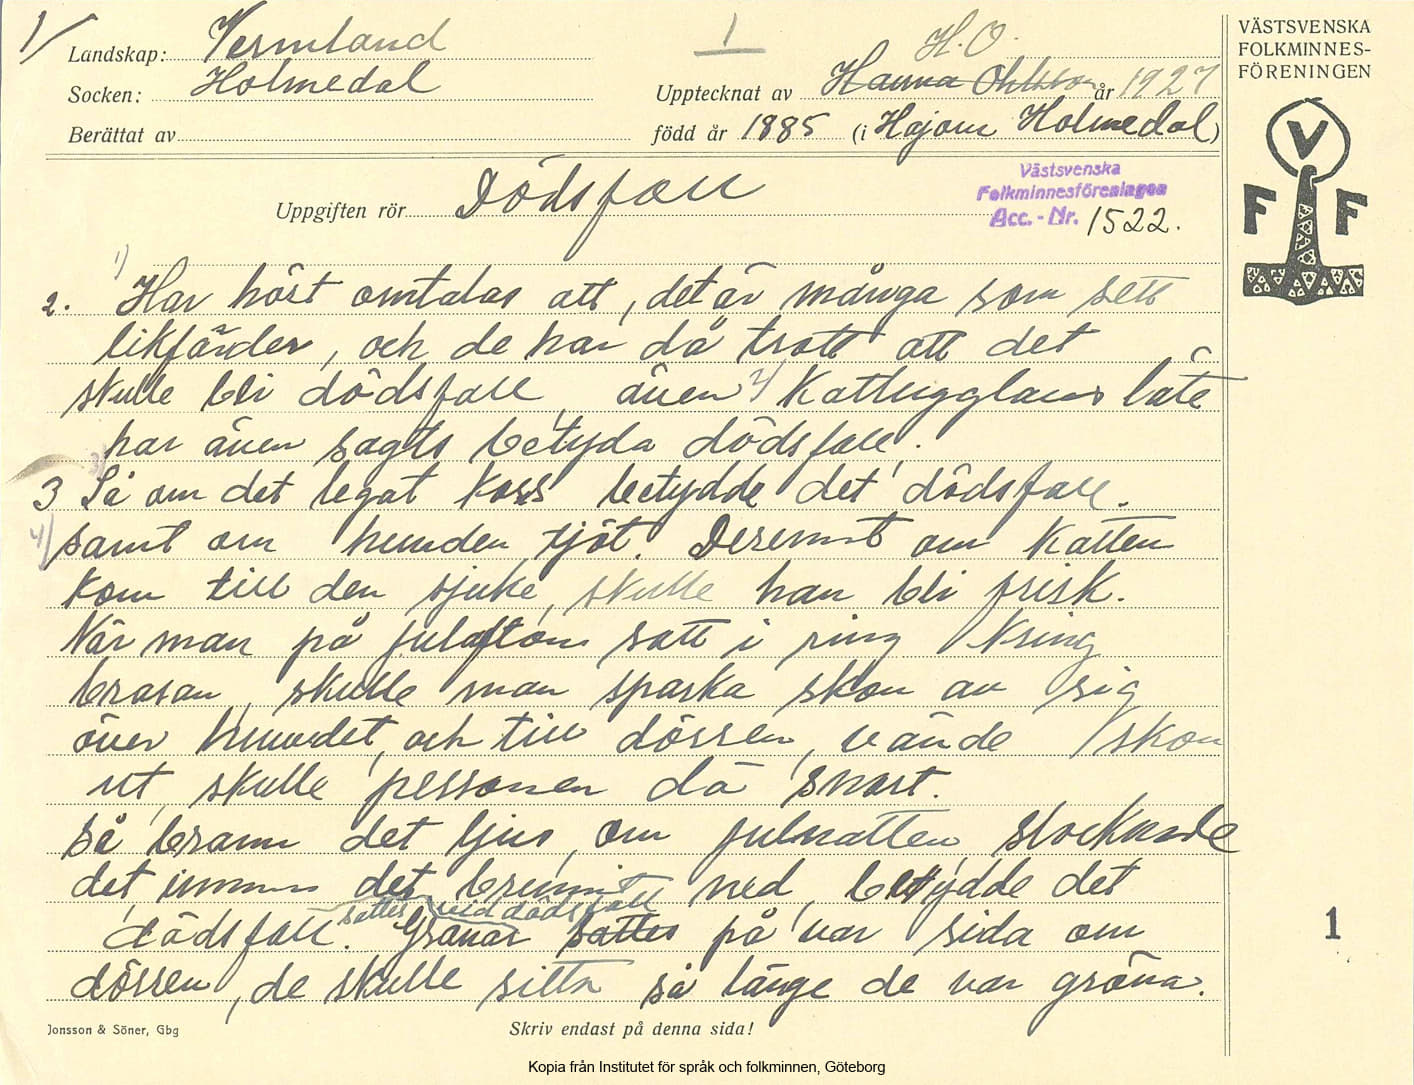 1/
Landskap: Vermland
1
H. O.
VÄSTSVENSKA
FOLKMINNES-
FÖRENINGEN
Socken: Holmedal
Upptecknat av Hanna Ohlsson år 1927
Berättat av
född år 1885 (i Hajom Holmedal)
V
F F
Uppgiften rör Dödsfall
Västsvenska
Folkminnesföreningen
Acc. - Nr. 1522.
1)
2. Har hört omtalas att, det är många som sett
likfärder, och de har då trott att det
skulle bli dödsfall, även 2/ Kattugglans läte
har även sagts betyda dödsfall.
3)
3 Så om det legat kors betydde det dödsfall.
4/ samt om hunden tjöt. Deremot om Katten
kom till den sjuke, skulle han bli frisk.
När man på julafton satt i ring kring
brasan, skulle man sparka skon av sig
över huvudet, och till dörren, vände skon
ut, skulle personen dö snart.
Så brann det ljus, om julnatten, slocknade
det, innan det brunnit ned, betydde det
sattes vid dödsfall
dödsfall. Granar sattes på var sida om
dörren, de skulle sitta så länge de var gröna.
1
Jonsson & Söner, Gbg
Skriv endast på denna sida!
Kopia från Institutet för språk och folkminnen, Göteborg